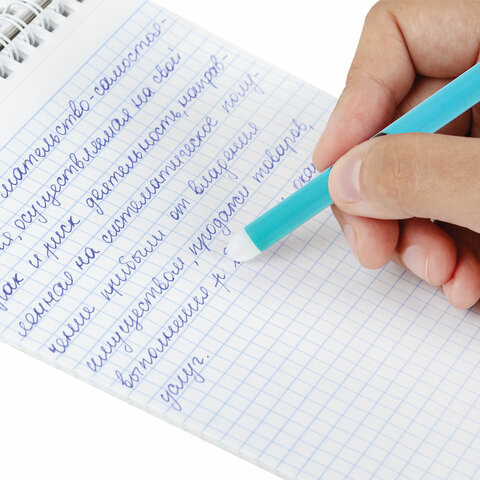 мательство - самостоя-
я, осуществляемая на свой
рак и риск деятельность, направ-
ленная на систематическое полу-
чение прибыли от владения
имуществом, продажи товаров,
выполнения р
услуг.